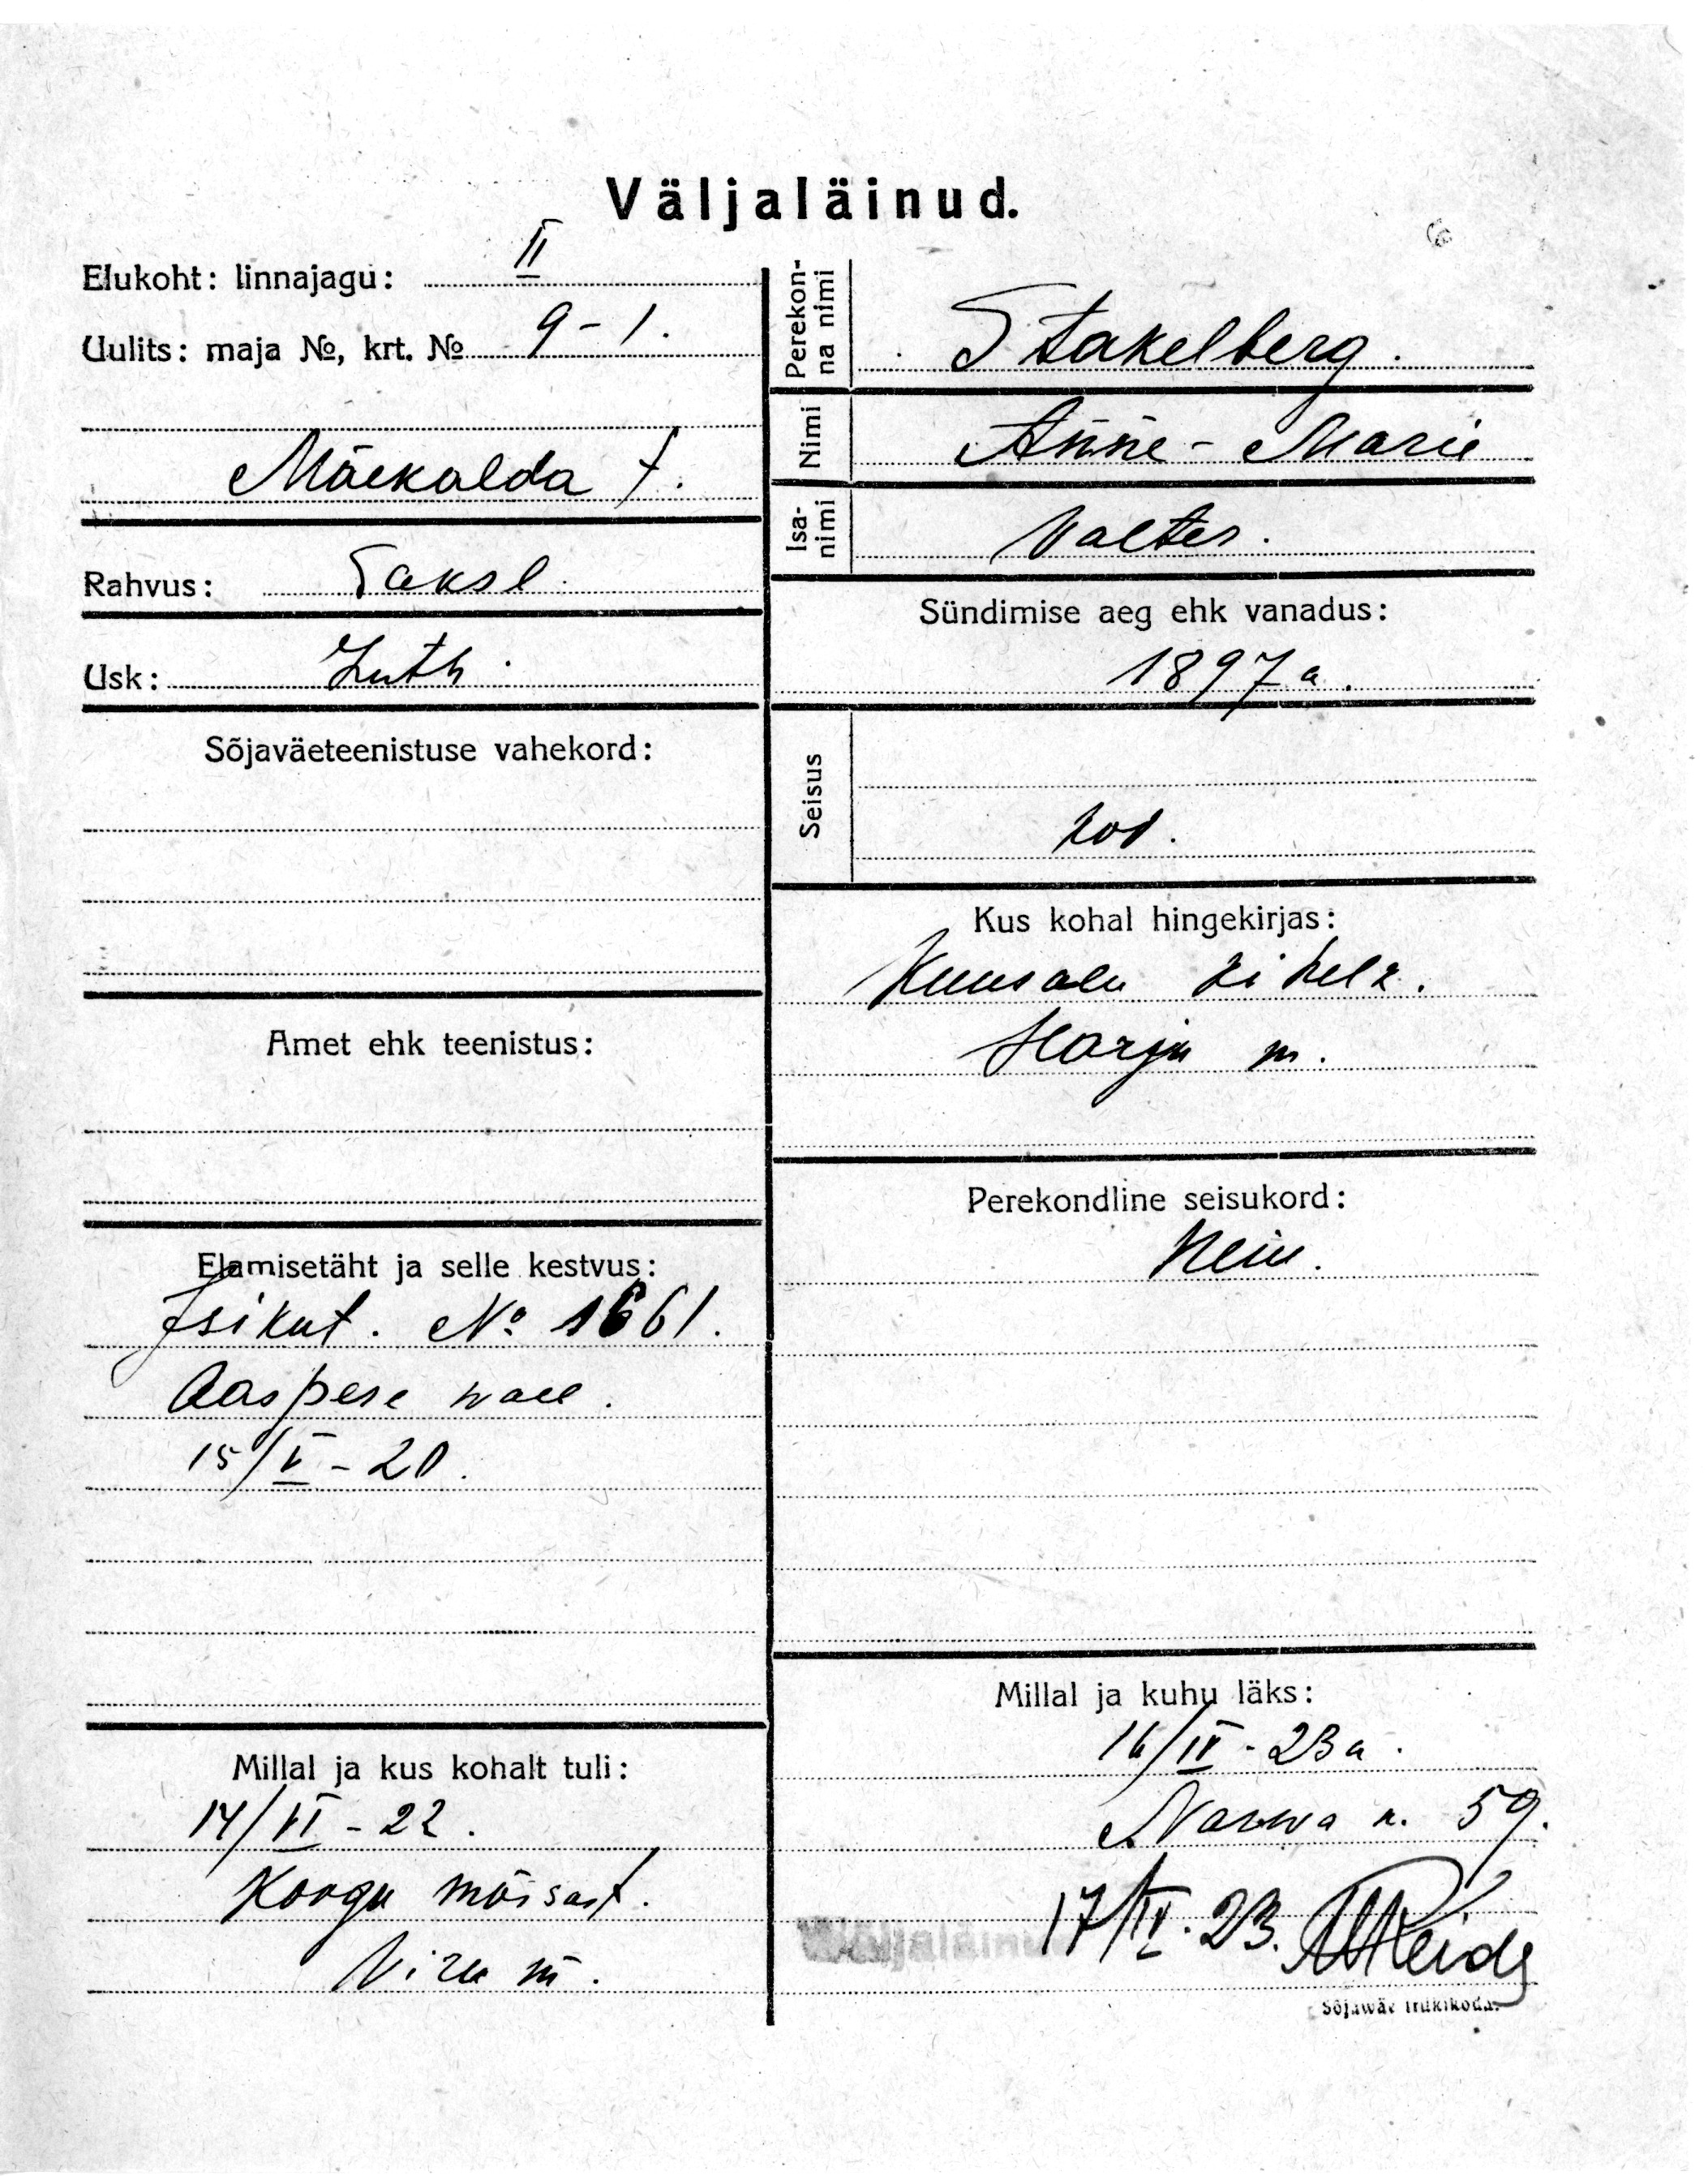 Väljaläinud.
Elukoht: linnajagu: II
Uulits: maja №, krt. № 9-1.
Mäekalda t.
Rahvus: Saksl.
Usk: Luth.
Sõjaväeteenistuse vahekord:
Amet ehk teenistus:
Elamisetäht ja selle kestvus:
Isikut. № 1661.
Aaspere wall.
15/V-20.
Millal ja kus kohalt tuli:
14/VI-22.
Koogu mõisast.
Viru m.
Perekon-
na nimi
Stakelberg.
Nimi Anne-Marie
Isa-
nimi
Valter.
Sündimise aeg ehk vanadus:
1897 a.
Seisus
Kus kohal hingekirjas:
Kuusalu kihelk.
Harju m.
Perekondline seisukord:
Neiu.
Millal ja kuhu läks:
16/IV-23 a.
Narwa m. 59.
Wäljaläinud
17/IV.23.
Sõjawäe trükikoda.